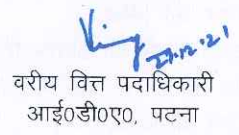 27.12.21
वरीय वित्त पदाधिकारी
आई०डी०ए०, पटना